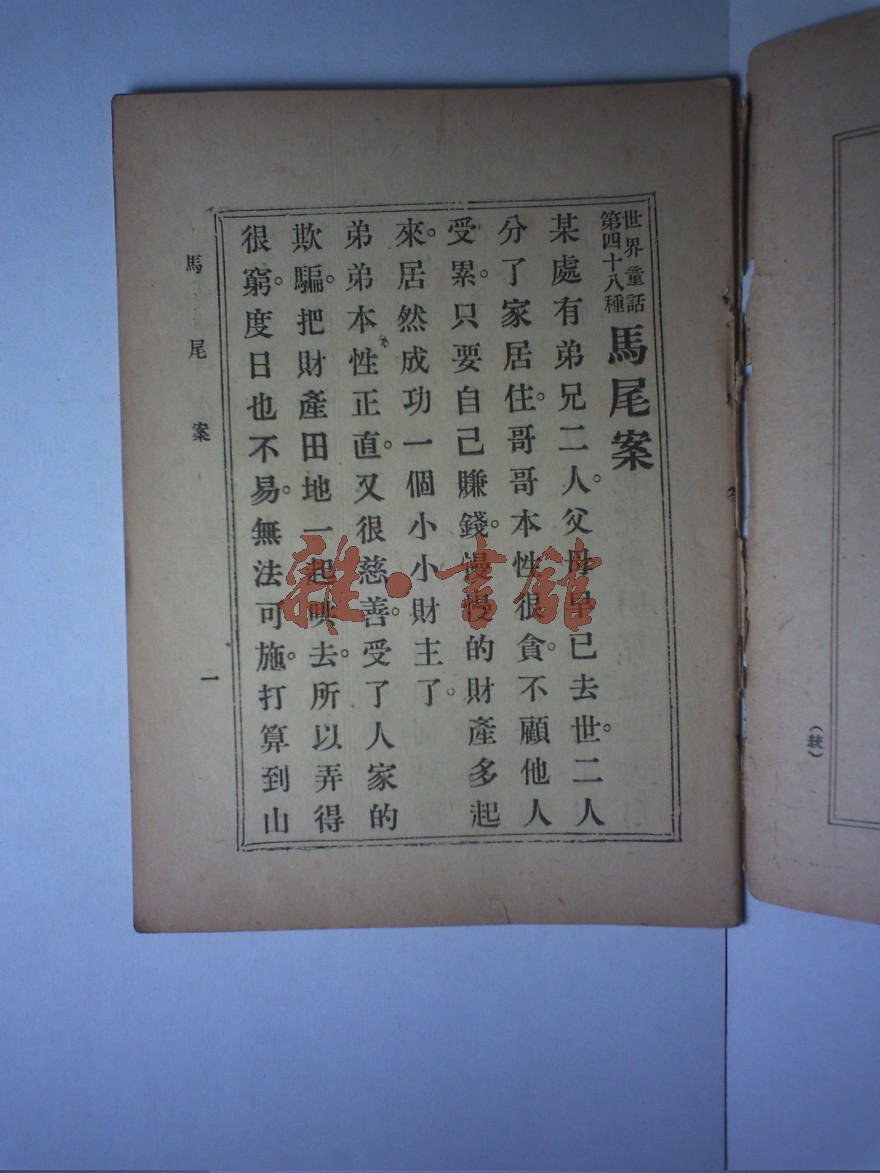 世界童話
第四十八種
馬尾案
某處有弟兄二人。父母早已去世。二人
分了家居住。哥哥本性很貪。不顧他人
受累。只要自己賺錢。慢慢的財產多起
來。居然成功一個小小財主了。
弟弟本性正直。又很慈善。受了人家的
欺騙。把財產田地一起哄去。所以弄得
很窮。度日也不易。無法可施。打算到山
馬尾案
一
雜·書館